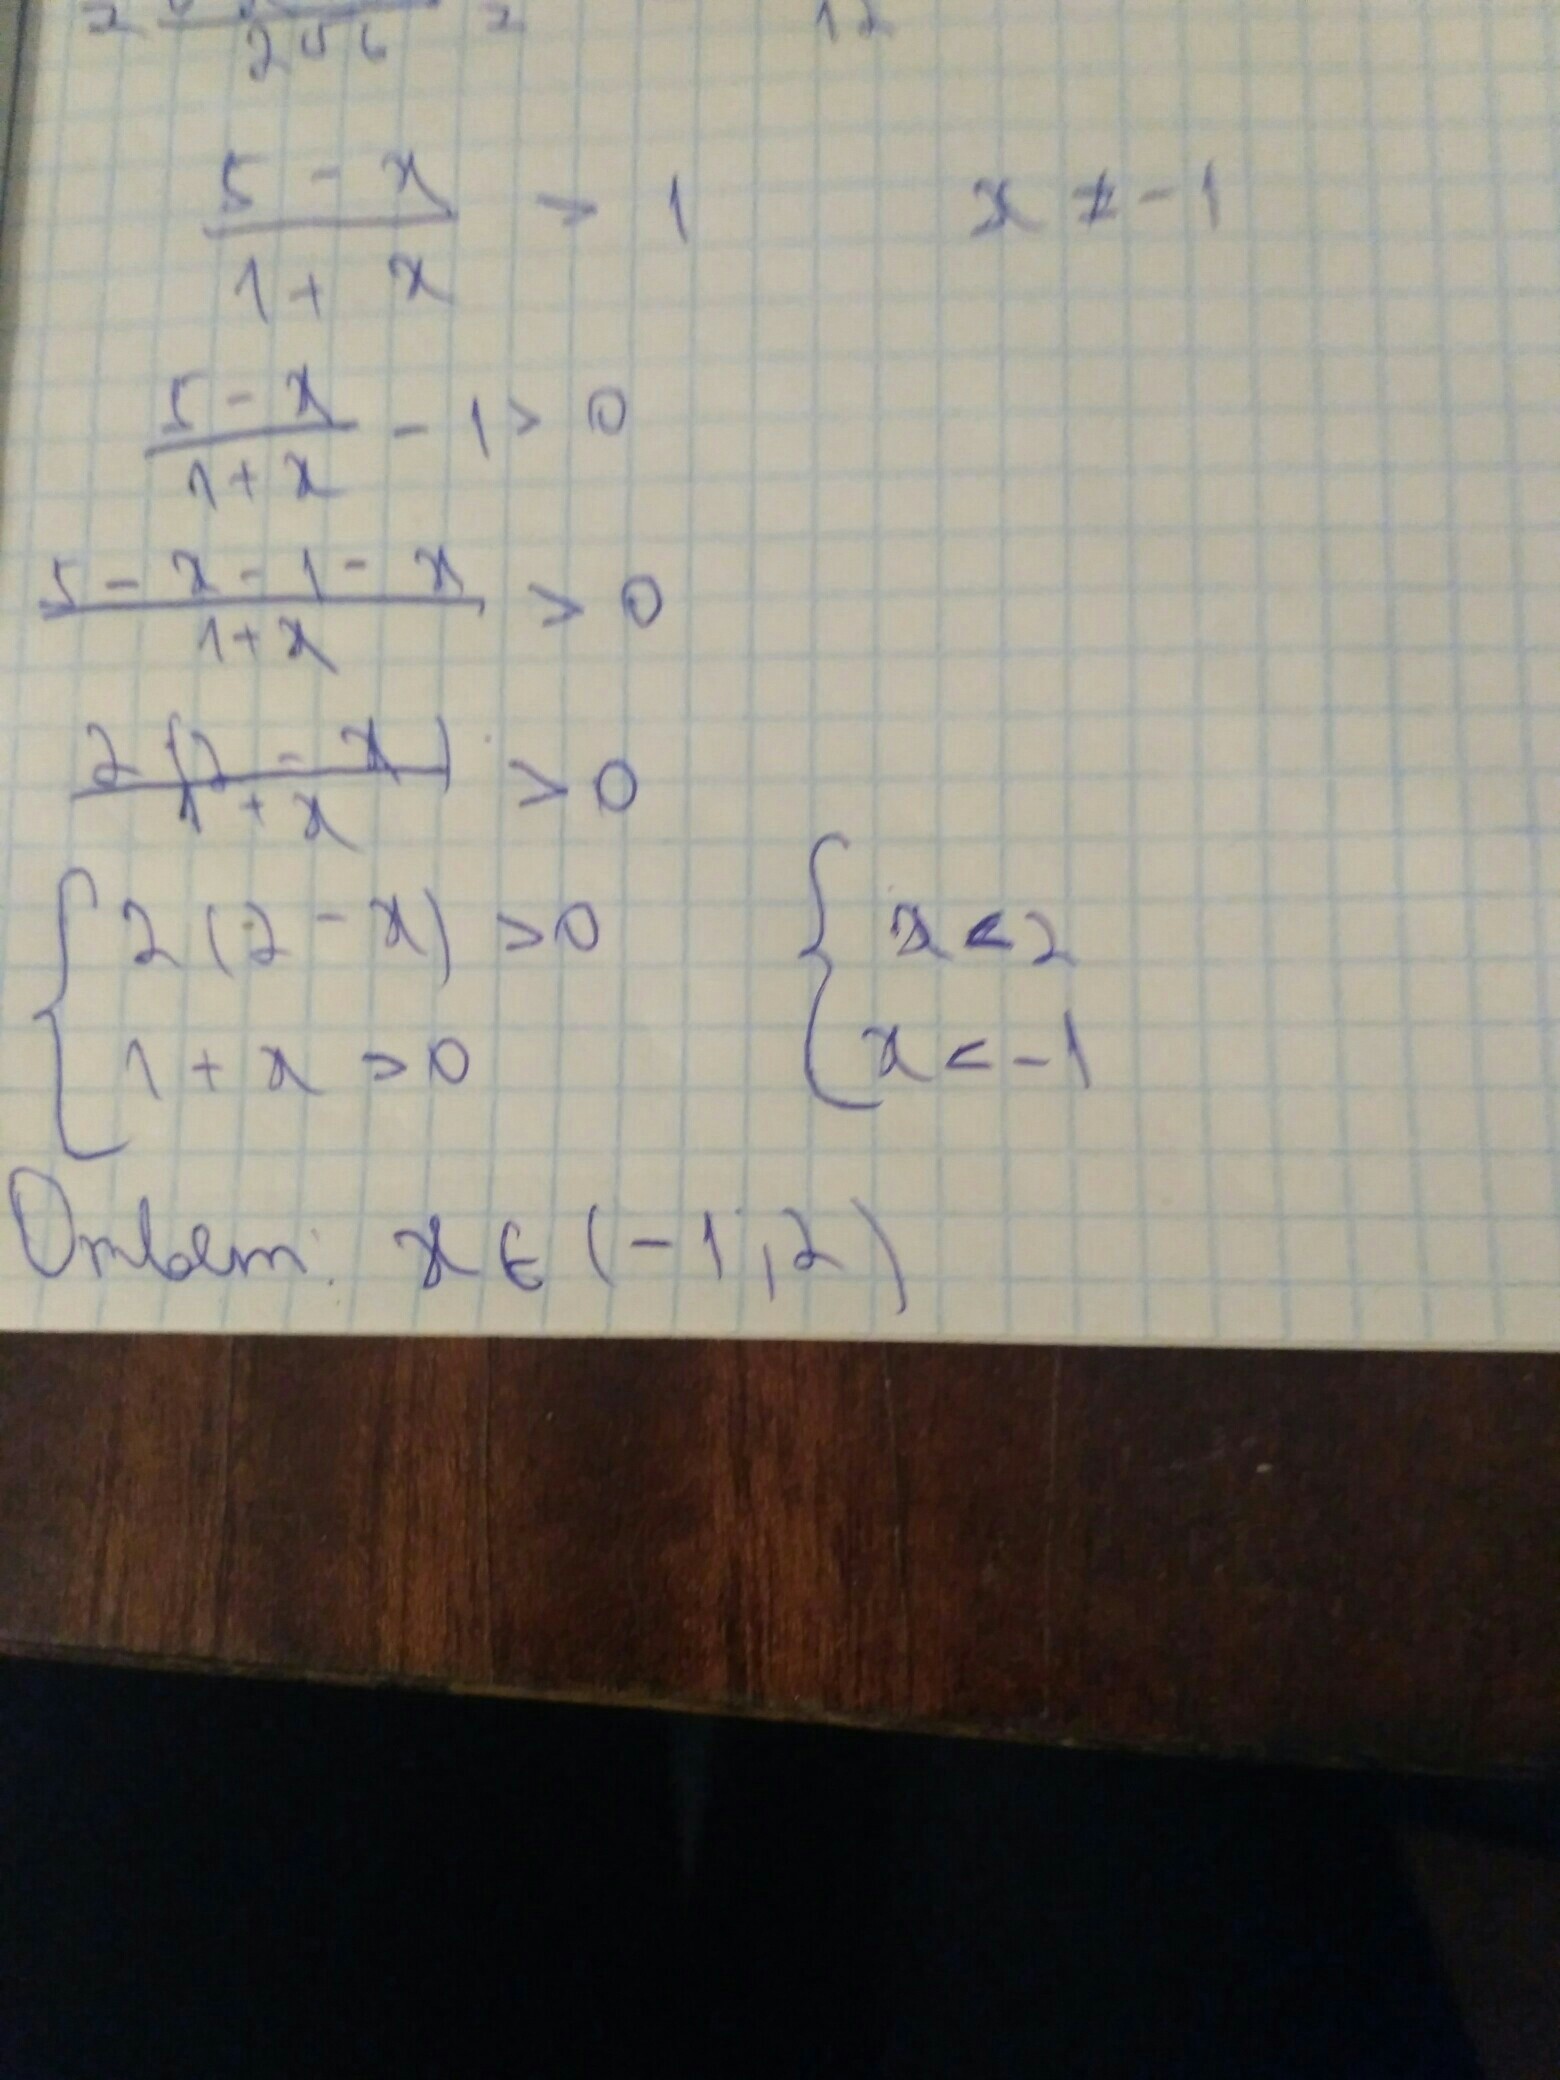 256 = 12
(5 - x)/(1 + x) > 1 x ≠ -1
(5 - x)/(1 + x) - 1 > 0
(5 - x - 1 - x)/(1 + x) > 0
(2(2 - x))/(1 + x) > 0
{ 2(2 - x) > 0 { x < 2
1 + x > 0 x < -1
Ответ: x ∈ (-1; 2)